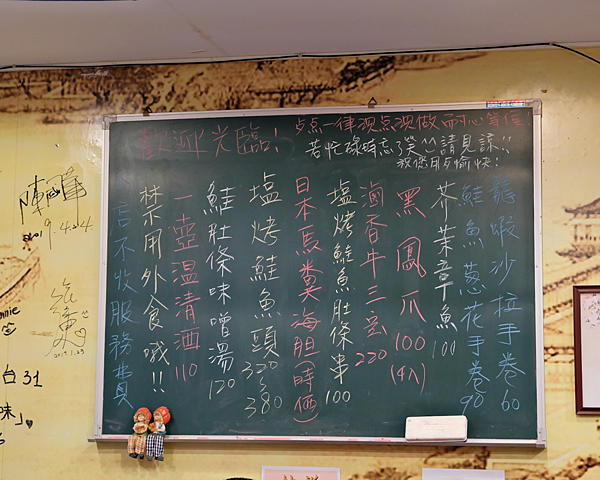 歡迎光臨!
歺点一律現点現做 耐心等候!
若忙碌時忘了笑 ^^ 請見諒!!
祝您用歺愉快!
龍蝦沙拉手卷 60
鮭魚蔥花手卷 90
芥茉章魚 100
黑鳳爪 100 (4入)
滷香牛三宝 220
塩烤鮭魚肚條串 100
日本馬糞海胆(時価)
塩烤鮭魚頭 320~380
鮭肚條味噌湯 120
一壺温清酒 110
禁用外食哦!!
不收服務費
nnie
台31
味」